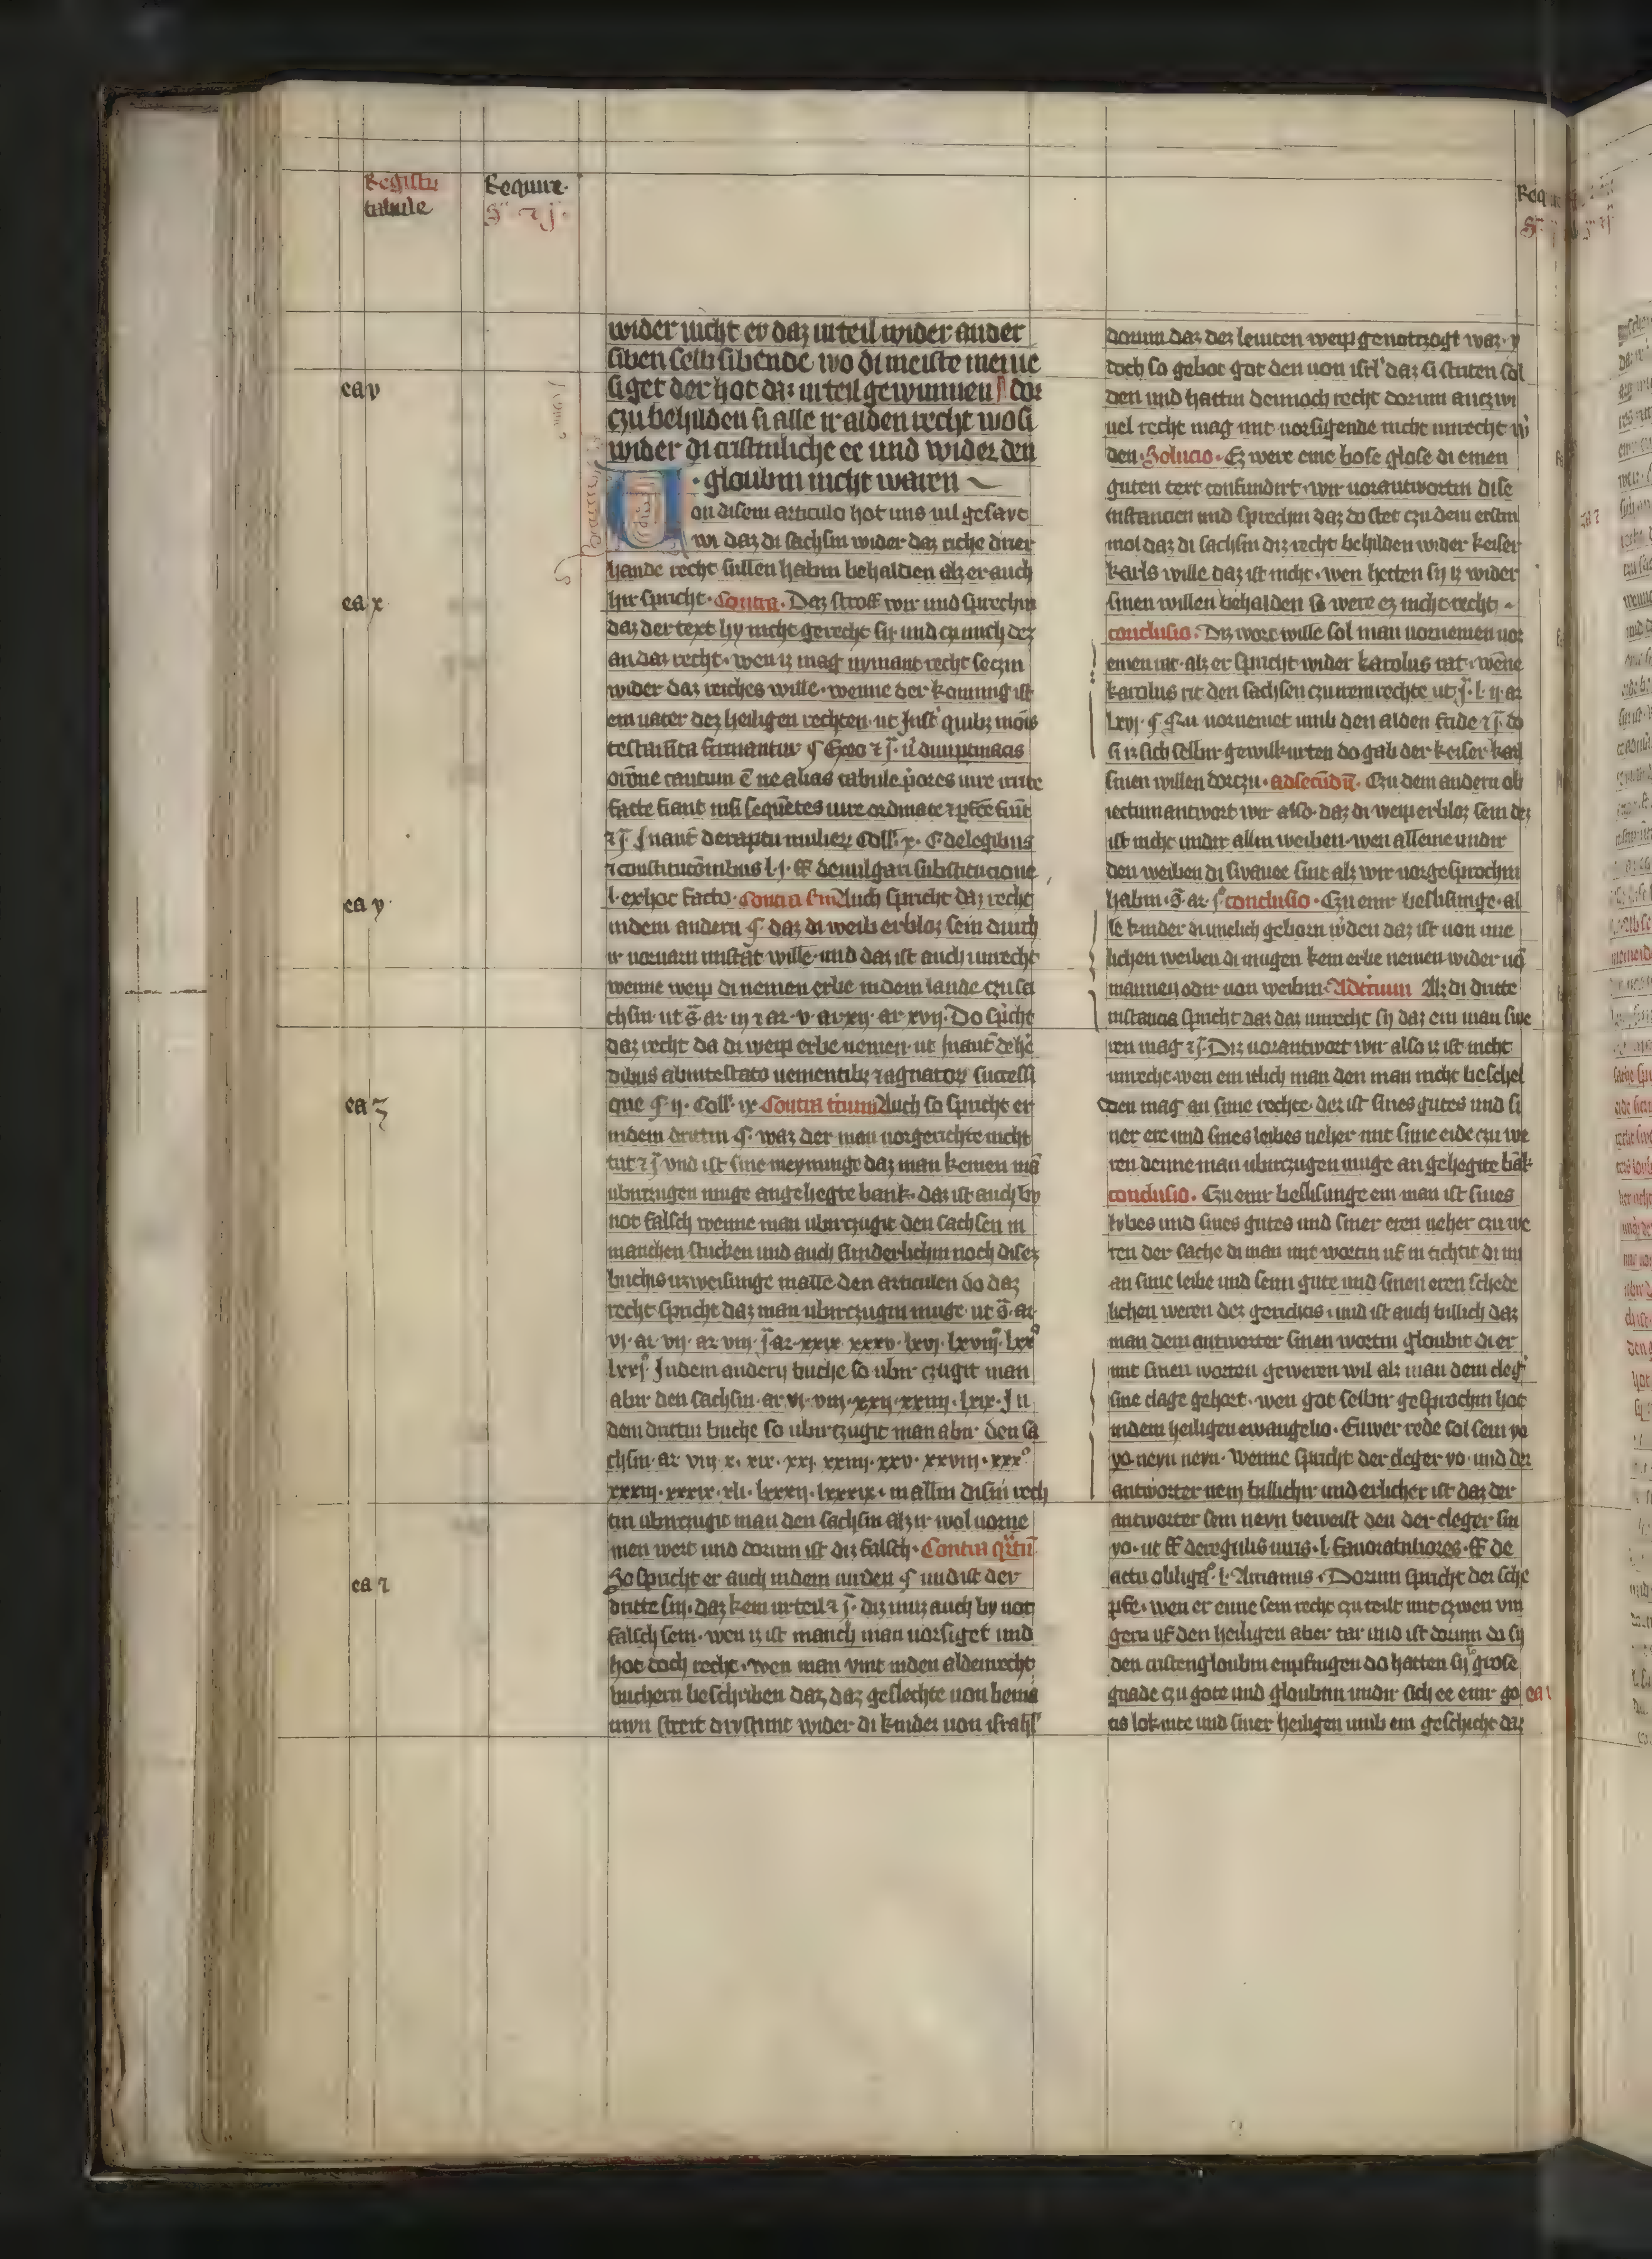 Registru
tabule
Require
S' ⁊ j
wider nicht er daz urteil wider ander
siben selb sibende wo di meiste menie
siget der hot daz urteil gewunnen dor
czu behilden si alle ir alden recht wo si
wider di cristinliche ee und wider den
gloubin nicht waren
ea v
Uon disem articulo hot uns uil gesayt
wi daz di sachsin wider daz riche drier
hande recht sullen habin behalden alz er auch
hir spricht. Contra. Daz strof wir und sprechin
ea x
daz der text hy nicht gerecht sy und czunich dez
an daz recht. wen iz mag nymant recht seczin
wider daz reiches wille. wenne der konning ist
ein uater dez heiligen rechten. ut Inst' quibz modis
testamenta firmantur § Ex eo ⁊ j.
facte fiant nisi sequentes iure ordinate ⁊ perfecte sunt
⁊ j. In aut' de raptu mulier. Coll. x. C de legibus
⁊ constitucionibus l. j. ff de uulgari substitucione
l. ex hoc facto. Contra secundum Auch spricht daz recht
ea y
in dem andern § daz di weib erbloz sein durch
ir uoruarn missetat wille. und daz ist auch unrecht
wenne weip di nemen erbe in dem lande czu sa
chsin. ut s. ar. iij ⁊ ar. v. ar xij. ar. xvij. Do spricht
daz recht da di weip erbe nemen. ut In aut' de he
dibus ab intestato uenientibz ⁊ agnatorum successi
que § ij. Coll. ix Contra tercium Auch so spricht er
ea z
in dem drittin § waz der man uor gerichte nicht
tut ⁊ j. vnd ist sine meynunge daz man keinen man
ubirczugen muge an gehegte bank. daz ist auch by
not falsch wenne man ubirczugit den sachsen in
manchen stucken und auch sunderlichin noch disez
buchis uzweisunge
recht spricht daz man ubirczugin muge. ut s. ar
vi. ar vij. ar viij. j ar. xxix. xxxv. lxvj. lxviij. lxx°
lxxj. In dem andern buche so ubir czugit man
abir den sachsin. ar vi. viij. xxij. xxiiij. lxix. In
dem drittin buche so ubirczugit man abir den sa
chsin. ar viij x. xix. xxj. xxiiij. xxv. xxviij. xxx°
xxxiij. xxxix. xli. lxxxij. lxxxix. in allin disin rech
tin ubirczugit man den sachsin alz ir wol uorne
men wert und dorum ist diz falsch. Contra quartum
So spricht er auch in dem uirden § und ist der
ea ⁊
dritte sin. daz kein urteil ⁊ j. diz muz auch by not
falsch sein. wen iz ist manch man uorsiget und
hot doch recht. wen man vint in den alden recht
buchern beschriben daz, daz geslechte uon benia
myn streit drystunt wider di kinder uon israhel
Req
dorum daz dez leuiten weip genotczogt waz. y
doch so gebot got den uon isrl' daz si striten sol
den und hattin dennoch recht dorum an czwi
uel recht mag mit uorsigende nicht unrecht w'
den. Solucio. Ez were eine bose glose di einen
guten text confundirt. wir uorantwortin dise
instancien und sprechin daz do stet czu dem ersten
mol daz di sachsin diz recht behilden wider keiser
karls wille daz ist nicht. wen hetten sy iz wider
sinen willen behalden so were ez nicht recht.
conclusio. Diz wort wille sol man uornemen uor
einen rat. alz er spricht wider karolus rat. wenne
karolus rit den sachsen czu irem rechte ut j. l. ij. ar
lxvj. § Nu uornemet umb den alden fride ⁊ j. do
si iz sich selbir gewilkurten do gab der keiser karl
sinen willen dorczu. ad secundum. Czu dem andern ob
iectum antwort wir also. daz di weip erbloz sein dez
ist nicht undir allin weiben. wen alleine undir
den weiben di swauee sint alz wir uorgesprochin
habin. s. ar. j° conclusio. Czu einir beslisunge. al
le kinder di unelich geborn w'den daz ist uon une
lichen weiben di mugen kein erbe nemen wider uon
mannen odir uon weibin. Ad tercium Alz di dritte
instancia spricht daz daz unrecht sy daz ein man swe
ren mag ⁊ j. Diz uorantwort wir also iz ist nicht
unrecht. wen ein itlich man den man nicht beschel
den mag an sime rechte. der ist sines gutes und si
ner ere und sines leibes neher mit sime eide czu we
ren denne man ubirczugen muge an gehegite bank
conclusio. Czu einir beslisunge ein man ist sines
lybes und sines gutes und siner eren neher czu we
ren der sache di man mit wortin uf in tichtit di im
an sime leibe und seim gute und sinen eren schede
lichen weren dez gerichtis. und ist auch billich daz
man dem antworter sinen wortin gloubit di er
mit sinen worten geweren wil alz man dem cleg'
sine clage gehort. wen got selbir gesprochin hot
in dem heiligen ewangelio. Euwer rede sol sein yo
yo neyn neyn. Wenne spricht der cleger yo. und der
antworter nein billichir und erlicher ist daz der
antworter sein neyn beweist den der cleger sin
yo. ut ff de regulis iuris. l. fauorabiliores. ff de
actu obliga°. l. Arrianus. Dorum spricht der sche
pfe. wen er eime sein recht czu teilt mit czwen vin
gern uf den heiligen aber tar und ist dorum do sy
den cristengloubin enpfingen do hatten sy grose
gnade czu gote und gloubtin undir sich ee einir go
ea ı
tis lok
und siner heiligen umb ein geschicht daz